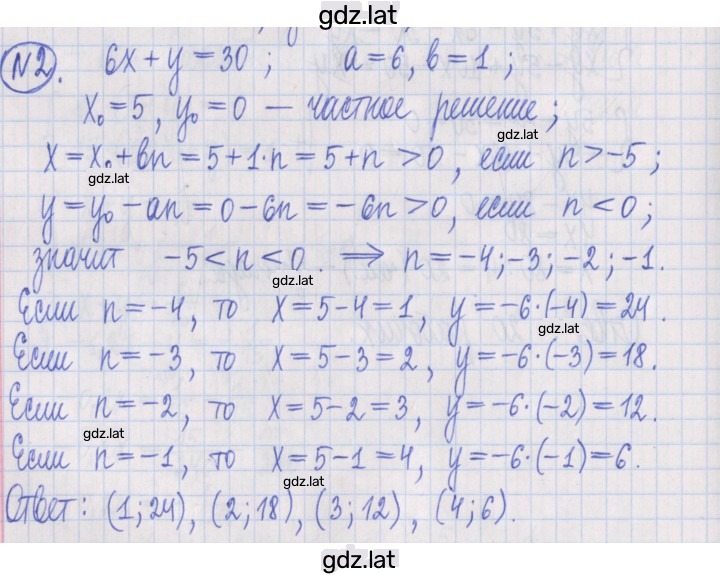 gdz.lat
№2. 6x + y = 30 ; a = 6, в = 1 ;
x₀ = 5, y₀ = 0 — частное решение ;
gdz.lat
x = x₀ + вn = 5 + 1·n = 5 + n > 0, если n > -5 ;
gdz.lat
y = y₀ - an = 0 - 6n = -6n > 0, если n < 0 ;
значит -5 < n < 0. ⟹ n = -4; -3; -2; -1.
gdz.lat
Если n = -4, то x = 5 - 4 = 1, y = -6·(-4) = 24.
gdz.lat
Если n = -3, то x = 5 - 3 = 2, y = -6·(-3) = 18.
Если n = -2, то x = 5 - 2 = 3, y = -6·(-2) = 12.
gdz.lat
Если n = -1, то x = 5 - 1 = 4, y = -6·(-1) = 6.
gdz.lat
Ответ: (1; 24), (2; 18), (3; 12), (4; 6).
gdz.lat